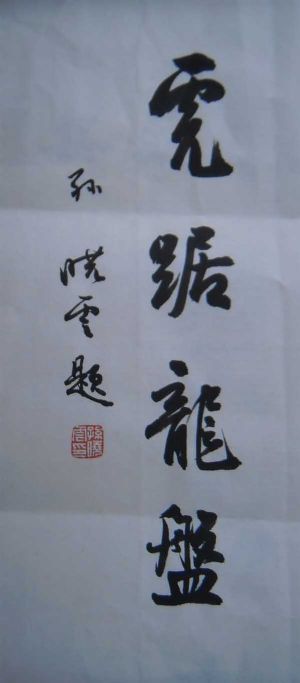 虎踞龍盤
孫曉雲題